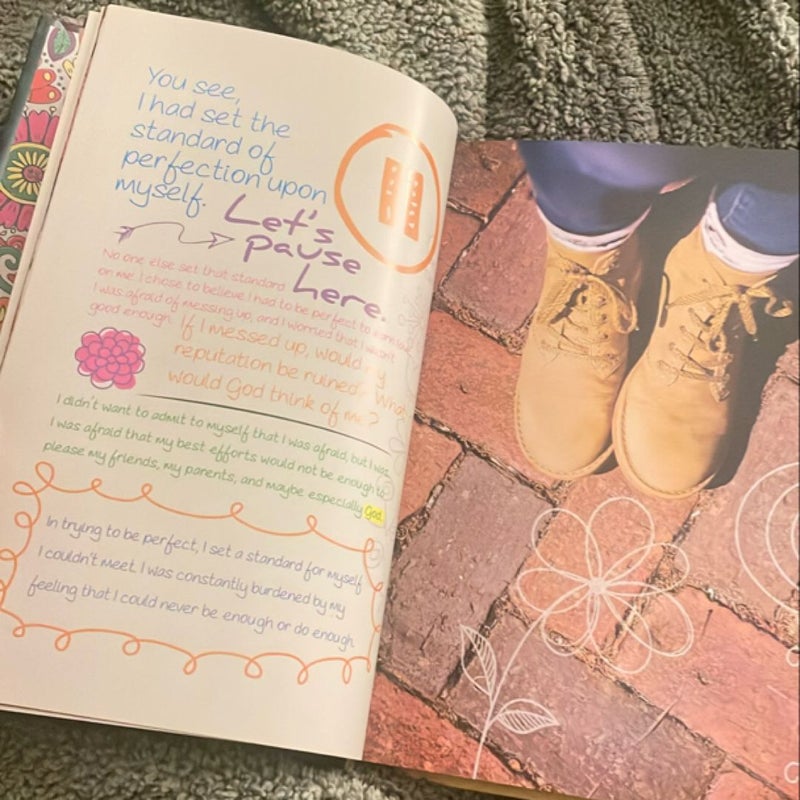 You see,
I had set the
standard of
perfection upon
myself.
Let's
pause
here.
No one else set that standard
on me. I chose to believe I had to be perfect to
I was afraid of messing up, and I worried that I wasn't
good enough.
If I messed up, would my
reputation be ruined? What
would God think of me?
I didn't want to admit to myself that I was afraid, but I was.
I was afraid that my best efforts would not be enough to
please my friends, my parents, and maybe especially God.
In trying to be perfect, I set a standard for myself
I couldn't meet. I was constantly burdened by my
feeling that I could never be enough or do enough.